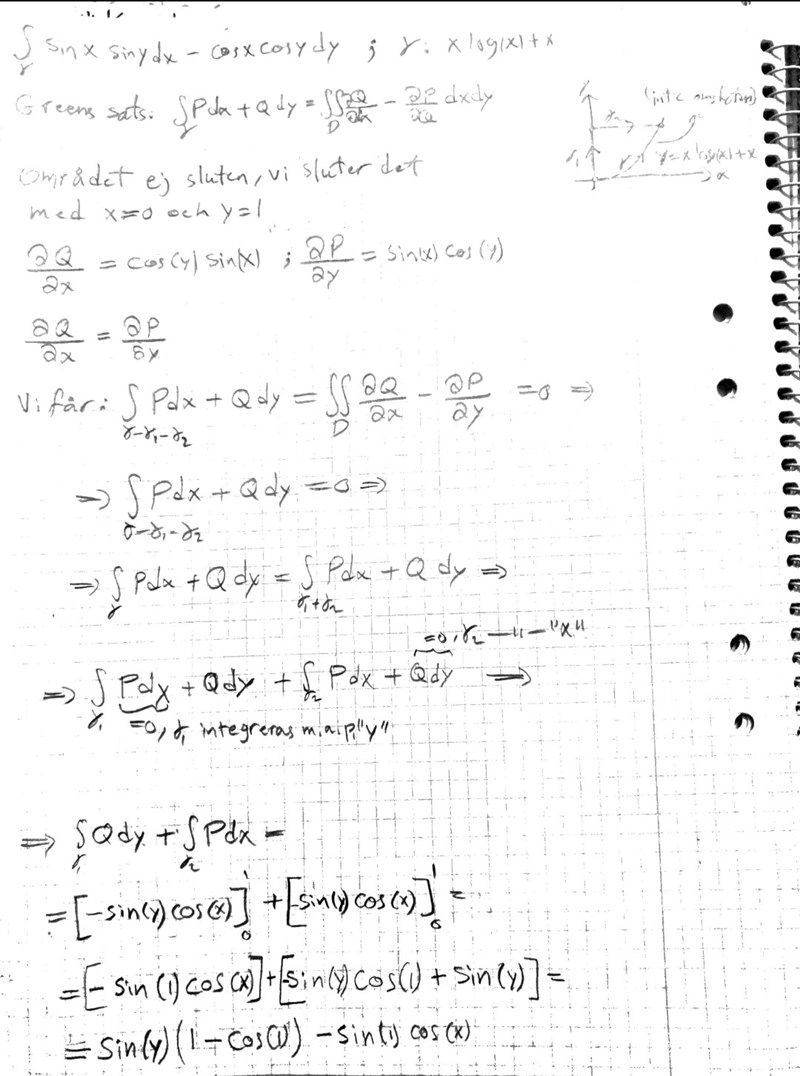 ∫γ sinx siny dx − cosx cosy dy ; γ: x log(x)+x
Greens sats: ∫γ Pdx + Q dy = ∬D ∂Q/∂x − ∂P/∂Q dxdy
γ2
γ1
γ
y = x log(x)+x
x
Området ej sluten, vi sluter det
med x=0 och y=1
∂Q/∂x = cos(y) sin(x) ; ∂P/∂y = sin(x) cos(y)
∂Q/∂x = ∂P/∂y
Vi får: ∫γ−γ1−γ2 Pdx + Q dy = ∬D ∂Q/∂x − ∂P/∂y = 0 ⇒
⇒ ∫γ−γ1−γ2 Pdx + Q dy = 0 ⇒
⇒ ∫γ Pdx + Q dy = ∫γ1+γ2 Pdx + Q dy ⇒
=0, γ2 —"—"x"
⇒ ∫γ1 Pdx + Qdy + ∫γ2 Pdx + Qdy ⇒
=0, γ1 integreras m.a.p. "y"
⇒ ∫γ1 Qdy + ∫γ2 Pdx =
= [-sin(y) cos(x)]₀¹ + [-sin(y) cos(x)]₀¹ =
= [- sin(1) cos(x)] + [-sin(y) cos(1) + sin(y)] =
= sin(y) (1 − cos(1)) − sin(1) cos(x)